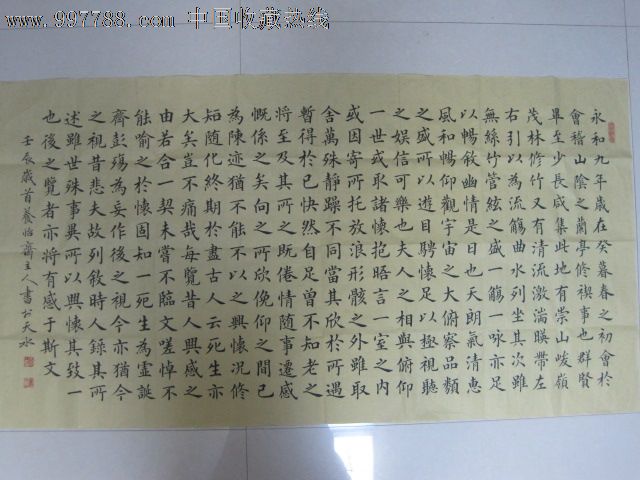 www.997788.com 中国收藏热线
永和九年歲在癸暮春之初會於
會稽山陰之蘭亭修禊事也群賢
畢至少長咸集此地有崇山峻嶺
茂林修竹又有清流激湍暎帶左
右引以為流觴曲水列坐其次雖
無絲竹管絃之盛一觴一詠亦足
以暢敘幽情是日也天朗氣清惠
風和暢仰觀宇宙之大俯察品類
之盛所以遊目騁懷足以極視聽
之娛信可樂也夫人之相與俯仰
一世或取諸懷抱晤言一室之內
或因寄所托放浪形骸之外雖取
舍萬殊靜躁不同當其欣於所遇
暫得於己快然自足曾不知老之
將至及其所之既倦情隨事遷感
慨係之矣向之所欣俛仰之間已
為陳迹猶不能不以之興懷況修
短随化終期於盡古人云死生亦
大矣豈不痛哉每覽昔人興感之
由若合一契未嘗不臨文嗟悼不
能喻之於懷固知一死生為虛誕
齊彭殤為妄作後之視今亦猶今
之視昔悲夫故列敘時人錄其所
述雖世殊事異所以興懷其致一
也後之覽者亦將有感于斯文
壬辰歲首養怡齋主人書於天水